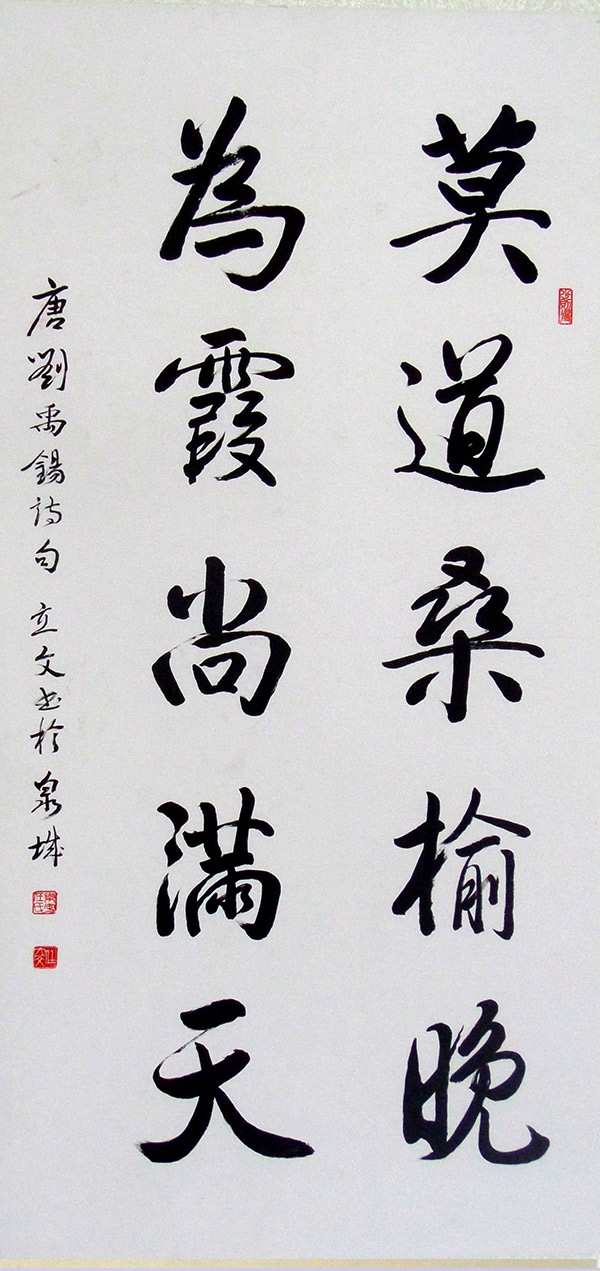 莫道桑榆晚
為霞尚满天
唐劉禹錫詩句 立文书於泉城